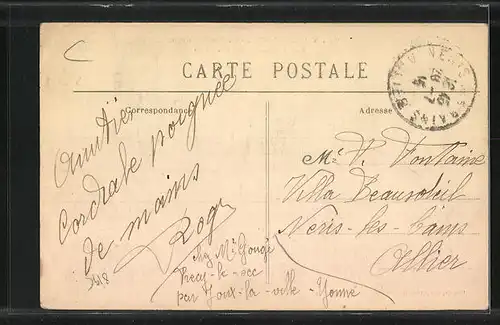 CARTE POSTALE
Correspondance
Adresse
Amitiés
Cordiale poignée
de mains
Roger
chez Mr Gougé
Précy-le-sec
par Joux-la-ville - Yonne
Mr V. Fontaine
Villa Beausoleil
Néris-les-bains
Allier